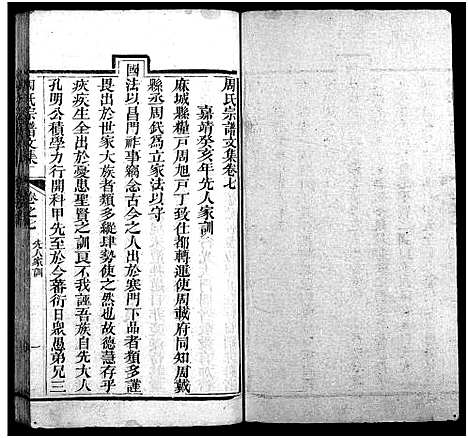 周氏宗譜文集卷七
嘉靖癸亥年先人家訓
麻城縣糧戸周旭戸丁致仕都轉運使周載府同知周戴
縣丞周武爲立家法以守
國法以昌門祚事竊念古今之人出於寒門下品者類多謹
畏出於世家大族者類多縱肆勢使之然也故德慧存乎
疢疾生全出於憂患聖賢之訓良不我誣吾族自先大人
孔明公積學力行開科甲先至於今蕃衍日衆愚弟兄三
周氏宗譜文集
卷之七
先人家訓
一